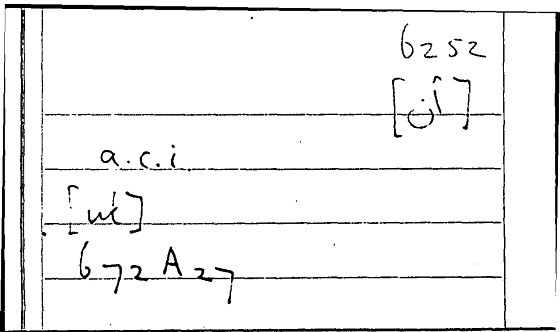 6252
[أن]
a.c.i.
[ut]
672A27